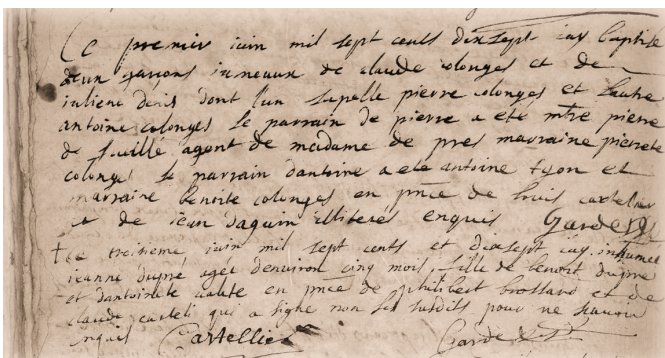 Ce premier iuin mil sept cents dixsept iay baptisé
deux garçons iumeaux de claude colonges et de
iuliene denis dont l'un sapelle pierre colonges et lautre
antoine colonges le parrain de pierre a ete mtre pierre
de agent de madame de pres marraine pierrete
colonges le parrain dantoine a ete antoine et
marraine benoite colonges en pnce de louis
et de iean daguin illiterés enquis Garde
+ Ce troisieme iuin mil sept cents et dixsept iay inhumee
ieanne dupré agee denviron cinq mois fille de benoit dupre
et dantoinete en pnce de philibert brossard et de
claude qui a signe non les susdits pour ne scavoir
enquis Castellier Garde